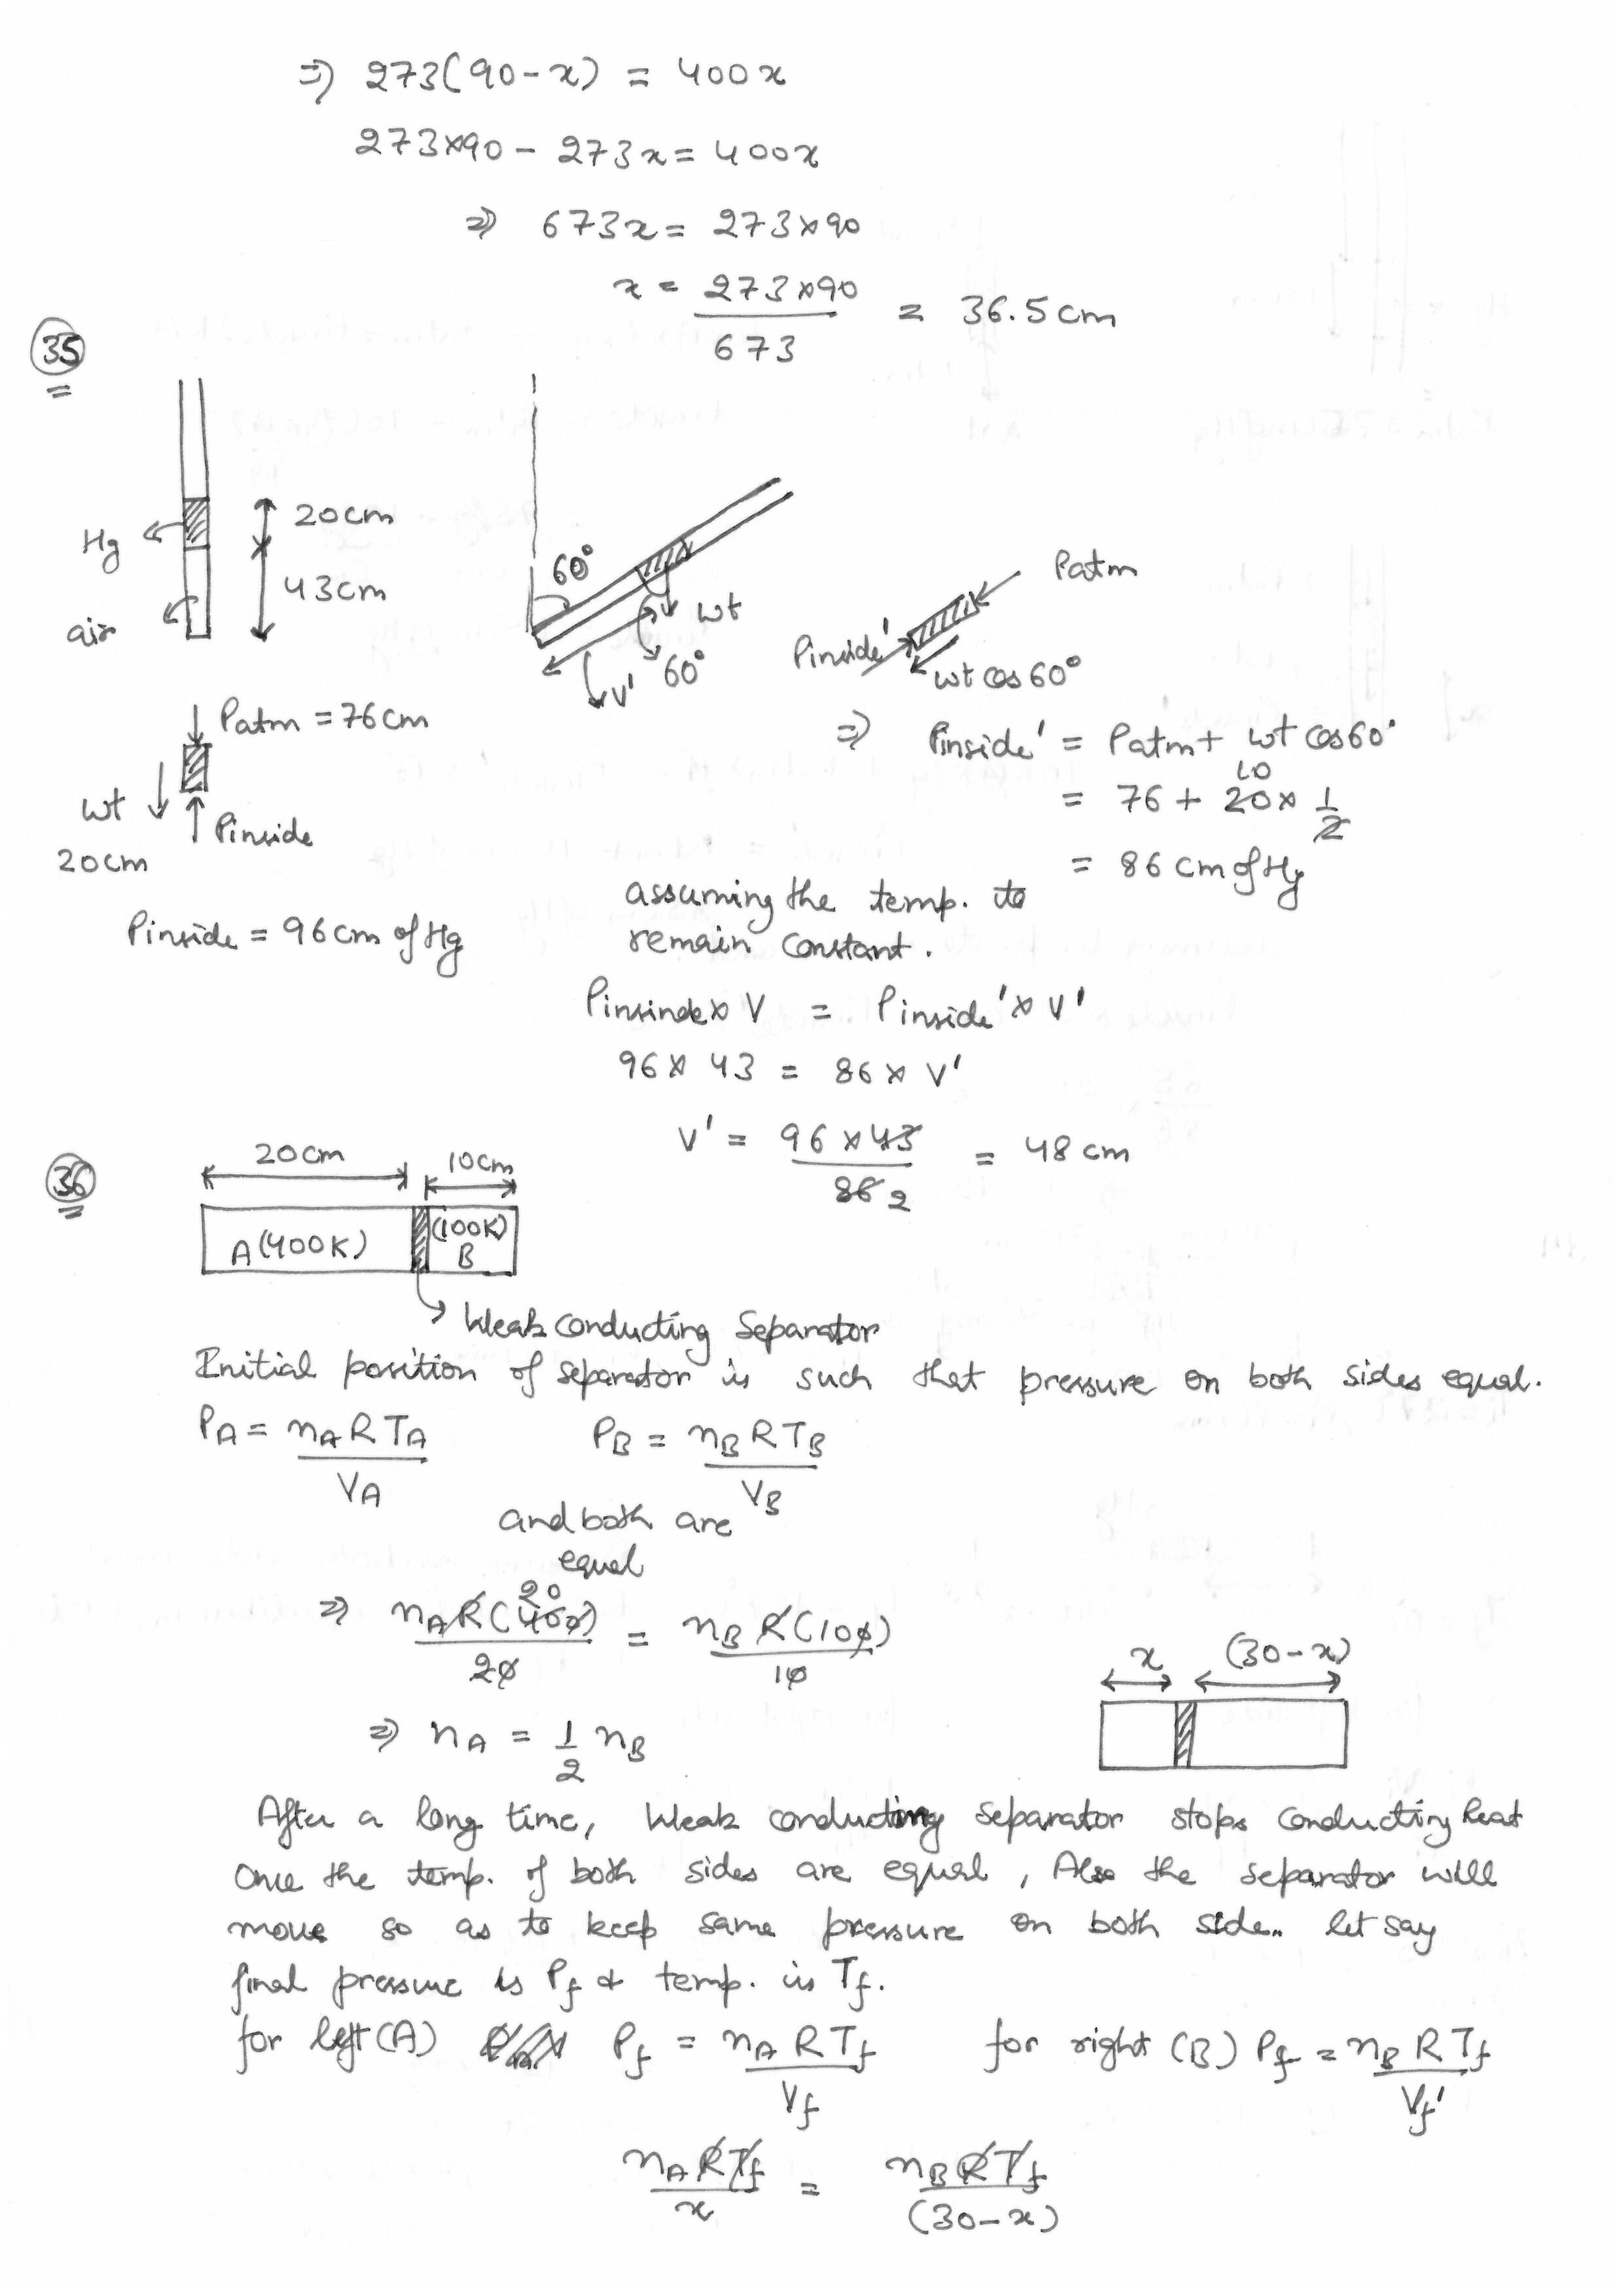 ⇒ 273(90-x) = 400x
273×90 - 273x = 400x
⇒ 673x = 273×90
x = 273×90 / 673 = 36.5 cm
35
Hg
air
20cm
43cm
60°
wt
60°
V'
Patm
Pinside'
wt cos 60°
Patm = 76cm
wt
20cm
Pinside
Pinside = 96 cm of Hg
⇒ Pinside' = Patm + wt cos 60°
= 76 + 20 × 1/2
10
= 86 cm of Hg
assuming the temp. to
remain constant.
Pinsinde × V = Pinside' × V'
96 × 43 = 86 × V'
V' = 96 × 43 / 86 2 = 48 cm
36
20cm
10cm
A (400K)
(100K)
B
Weak conducting Separator
Initial position of separator is such that pressure on both sides equal.
PA = nA R TA / VA
PB = nB R TB / VB
and both are
equal
⇒ nA R (400) / 20 = nB R (100) / 10
20
⇒ nA = 1/2 nB
x
(30-x)
After a long time, Weak conducting separator stops conducting heat
Once the temp. of both sides are equal, Also the separator will
move so as to keep same pressure on both side.. let say
final pressure is Pf & temp. is Tf.
for left (A) Pf = nA R Tf / Vf
for right (B) Pf = nB R Tf / Vf'
nA R Tf / x = nB R Tf / (30-x)